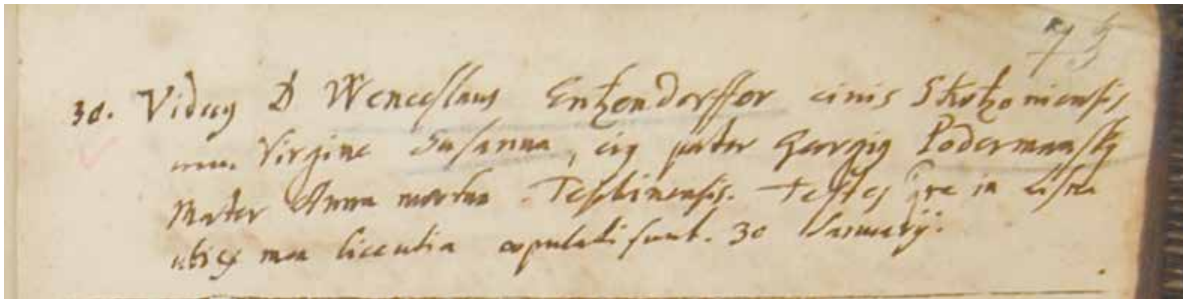 30. Viduq D Wenceslaus Entzendorffer civis Skotzoviensis
cum Virgine Susanna, eiq pater Georgiq Podermansky
Mater Anna mortua. Teschinensis. Testes
mea licentia copulati sunt. 30 Januarij.